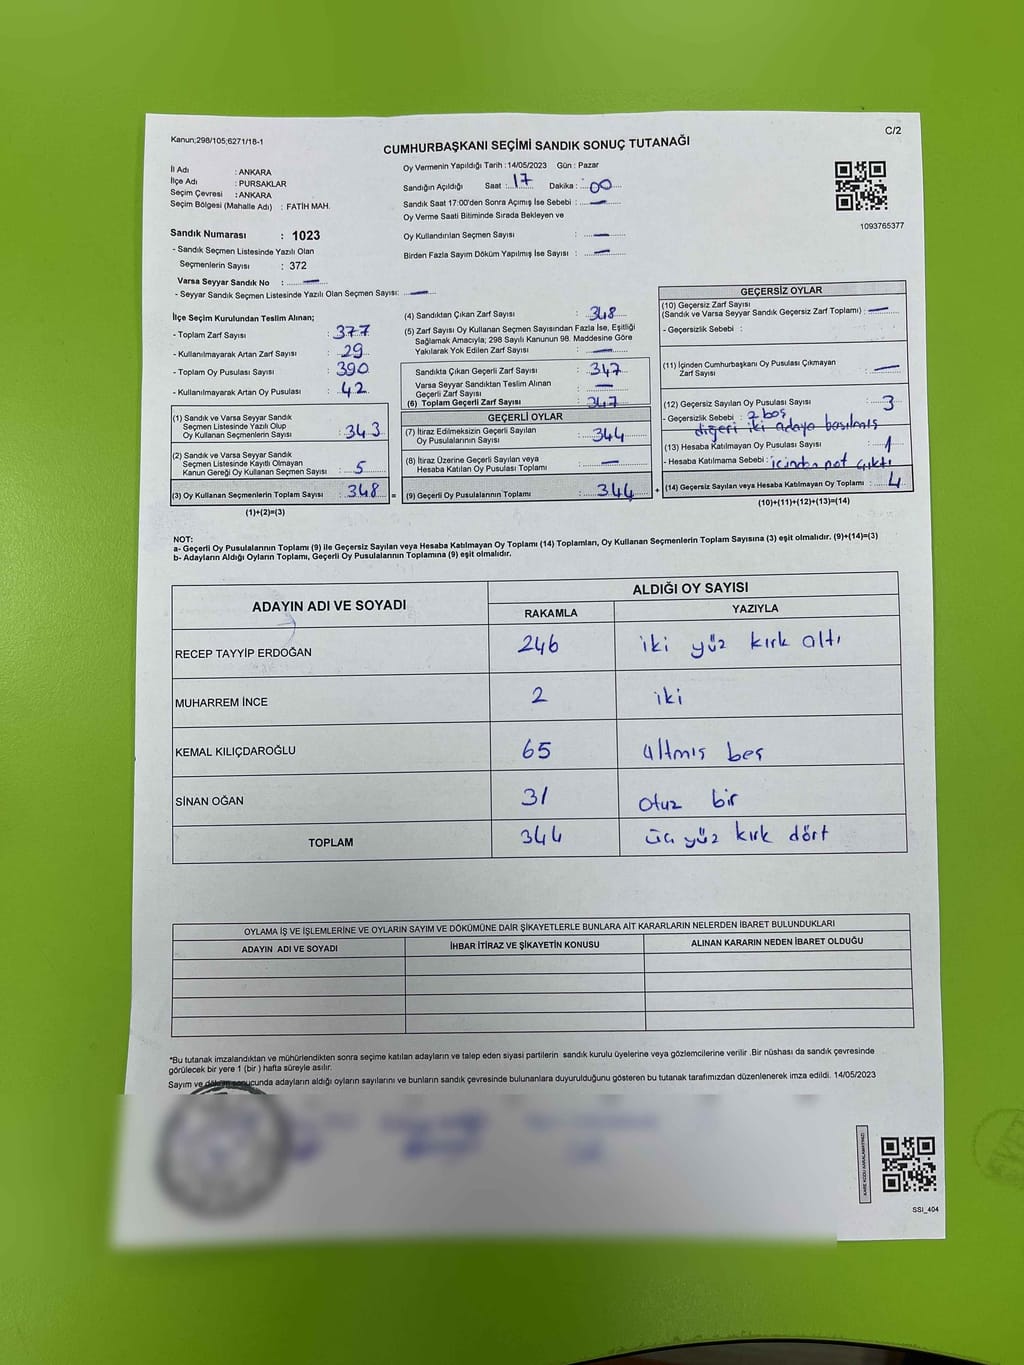 Kanun;298/105;6271/18-1
C/2
CUMHURBAŞKANI SEÇİMİ SANDIK SONUÇ TUTANAĞI
İl Adı : ANKARA
İlçe Adı : PURSAKLAR
Seçim Çevresi : ANKARA
Seçim Bölgesi (Mahalle Adı) : FATİH MAH.
Sandık Numarası : 1023
- Sandık Seçmen Listesinde Yazılı Olan
Seçmenlerin Sayısı : 372
Varsa Seyyar Sandık No : —
- Seyyar Sandık Seçmen Listesinde Yazılı Olan Seçmen Sayısı: —
Oy Vermenin Yapıldığı Tarih : 14/05/2023 Gün : Pazar
Sandığın Açıldığı Saat : 17 Dakika : 00
Sandık Saat 17:00'den Sonra Açımış İse Sebebi : —
Oy Verme Saati Bitiminde Sırada Bekleyen ve
Oy Kullandırılan Seçmen Sayısı : —
Birden Fazla Sayım Döküm Yapılmış İse Sayısı : —
1093765377
İlçe Seçim Kurulundan Teslim Alınan;
- Toplam Zarf Sayısı : 377
- Kullanılmayarak Artan Zarf Sayısı : 29
- Toplam Oy Pusulası Sayısı : 390
- Kullanılmayarak Artan Oy Pusulası : 42
(1) Sandık ve Varsa Seyyar Sandık
Seçmen Listesinde Yazılı Olup
Oy Kullanan Seçmenlerin Sayısı : 343
(2) Sandık ve Varsa Seyyar Sandık
Seçmen Listesinde Kayıtlı Olmayan
Kanun Gereği Oy Kullanan Seçmen Sayısı : 5
(3) Oy Kullanan Seçmenlerin Toplam Sayısı : 348 =
(1)+(2)=(3)
(4) Sandıktan Çıkan Zarf Sayısı : 348
(5) Zarf Sayısı Oy Kullanan Seçmen Sayısından Fazla İse, Eşitliği
Sağlamak Amacıyla; 298 Sayılı Kanunun 98. Maddesine Göre
Yakılarak Yok Edilen Zarf Sayısı : —
Sandıkta Çıkan Geçerli Zarf Sayısı : 347
Varsa Seyyar Sandıktan Teslim Alınan
Geçerli Zarf Sayısı : —
(6) Toplam Geçerli Zarf Sayısı : 347
GEÇERLİ OYLAR
(7) İtiraz Edilmeksizin Geçerli Sayılan
Oy Pusulalarının Sayısı : 344
(8) İtiraz Üzerine Geçerli Sayılan veya
Hesaba Katılan Oy Pusulası Toplamı : —
(9) Geçerli Oy Pusulalarının Toplamı : 344 +
GEÇERSİZ OYLAR
(10) Geçersiz Zarf Sayısı
(Sandık ve Varsa Seyyar Sandık Geçersiz Zarf Toplamı) : —
- Geçersizlik Sebebi :
(11) İçinden Cumhurbaşkanı Oy Pusulası Çıkmayan
Zarf Sayısı : —
(12) Geçersiz Sayılan Oy Pusulası Sayısı : 3
- Geçersizlik Sebebi : 2 boş
diğeri iki adaya basılmış
(13) Hesaba Katılmayan Oy Pusulası Sayısı : 1
- Hesaba Katılmama Sebebi : içinden not çıktı
(14) Geçersiz Sayılan veya Hesaba Katılmayan Oy Toplamı : 4
(10)+(11)+(12)+(13)=(14)
NOT:
a- Geçerli Oy Pusulalarının Toplamı (9) ile Geçersiz Sayılan veya Hesaba Katılmayan Oy Toplamı (14) Toplamları, Oy Kullanan Seçmenlerin Toplam Sayısına (3) eşit olmalıdır. (9)+(14)=(3)
b- Adayların Aldığı Oyların Toplamı, Geçerli Oy Pusulalarının Toplamına (9) eşit olmalıdır.
ADAYIN ADI VE SOYADI
ALDIĞI OY SAYISI
RAKAMLA YAZIYLA
RECEP TAYYİP ERDOĞAN 246 iki yüz kırk altı
MUHARREM İNCE 2 iki
KEMAL KILIÇDAROĞLU 65 altmış beş
SİNAN OĞAN 31 otuz bir
TOPLAM 344 üç yüz kırk dört
OYLAMA İŞ VE İŞLEMLERİNE VE OYLARIN SAYIM VE DÖKÜMÜNE DAİR ŞİKAYETLERLE BUNLARA AİT KARARLARIN NELERDEN İBARET BULUNDUKLARI
ADAYIN ADI VE SOYADI İHBAR İTİRAZ VE ŞİKAYETİN KONUSU ALINAN KARARIN NEDEN İBARET OLDUĞU
*Bu tutanak imzalandıktan ve mühürlendikten sonra seçime katılan adayların ve talep eden siyasi partilerin sandık kurulu üyelerine veya gözlemcilerine verilir .Bir nüshası da sandık çevresinde
görülecek bir yere 1 (bir ) hafta süreyle asılır.
Sayım ve döküm sonucunda adayların aldığı oyların sayılarını ve bunların sandık çevresinde bulunanlara duyurulduğunu gösteren bu tutanak tarafımızdan düzenlenerek imza edildi. 14/05/2023
KARE KODU KARALAMAYINIZ!
SSI_404